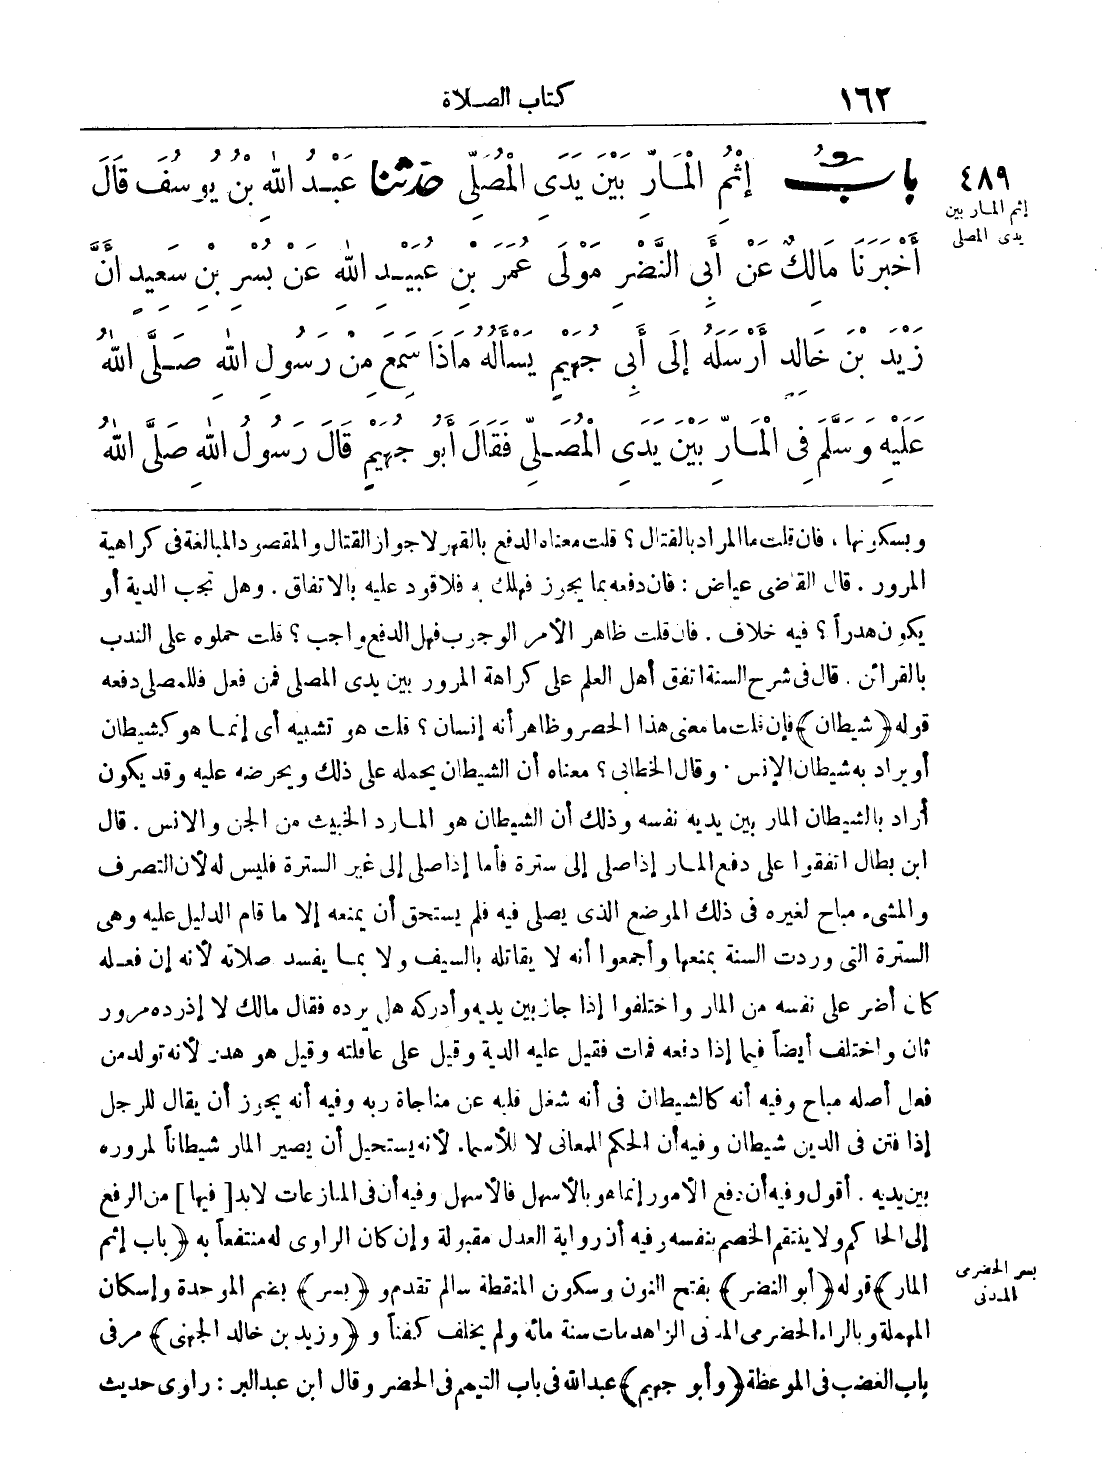 ١٦٢ كتاب الصلاة
٤٨٩
إثم المار بين
يدى المصلى
بابُ إِثْمِ الْمَارِّ بَيْنَ يَدَىِ الْمُصَلِّى حدثنا عَبْدُ اللهِ بْنُ يُوسُفَ قَالَ
أَخْبَرَنَا مَالِكٌ عَنْ أَبِى النَّضْرِ مَوْلَى عُمَرَ بْنِ عُبَيْدِ اللهِ عَنْ بُسْرِ بْنِ سَعِيدٍ أَنَّ
زَيْدَ بْنَ خَالِدٍ أَرْسَلَهُ إِلَى أَبِى جُهَيْمٍ يَسْأَلُهُ مَاذَا سَمِعَ مِنْ رَسُولِ اللهِ صَلَّى اللهُ
عَلَيْهِ وَسَلَّمَ فِى الْمَارِّ بَيْنَ يَدَىِ الْمُصَلِّى فَقَالَ أَبُو جُهَيْمٍ قَالَ رَسُولُ اللهِ صَلَّى اللهُ
وبسكونها ، فان قلت ما المراد بالقتال ؟ قلت معناه الدفع بالقهر لا جواز القتال والمقصود المبالغة فى كراهية
المرور . قال القاضى عياض : فان دفعه بما يجوز فهلك به فلا قود عليه بالاتفاق . وهل تجب الدية أو
يكون هدراً ؟ فيه خلاف . فان قلت ظاهر الأمر الوجوب فهل الدفع واجب ؟ قلت حملوه على الندب
بالقرائن . قال فى شرح السنة اتفق أهل العلم على كراهة المرور بين يدى المصلى فمن فعل فللمصلى دفعه
قوله ﴿شيطان﴾ فإن قلت ما معنى هذا الحصر وظاهر أنه إنسان ؟ قلت هو تشبيه أى إنما هو كشيطان
أو يراد به شيطان الإنس . وقال الخطابى ؟ معناه أن الشيطان يحمله على ذلك ويحرضه عليه وقد يكون
أراد بالشيطان المار بين يديه نفسه وذلك أن الشيطان هو المارد الخبيث من الجن والانس . قال
ابن بطال اتفقوا على دفع المار إذا صلى إلى سترة فأما إذا صلى إلى غير السترة فليس له لأن التصرف
والمشىء مباح لغيره فى ذلك الموضع الذى يصلى فيه فلم يستحق أن يمنعه إلا ما قام الدليل عليه وهى
السترة التى وردت السنة بمنعها وأجمعوا أنه لا يقاتله بالسيف ولا بما يفسد صلاته لأنه إن فعله
كان أضر على نفسه من المار واختلفوا إذا جاز بين يديه وأدركه هل يرده فقال مالك لا إذ رده مرور
ثان واختلف أيضاً فيما إذا دفعه فمات فقيل عليه الدية وقيل على عاقلته وقيل هو هدر لأنه تولد من
فعل أصله مباح وفيه أنه كالشيطان فى أنه شغل قلبه عن مناجاة ربه وفيه أنه يجوز أن يقال للرجل
إذا فتن فى الدين شيطان وفيه أن الحكم للمعانى لا للأسماء لأنه يستحيل أن يصير المار شيطاناً لمروره
بين يديه . أقول وفيه أن دفع الأمور إنما هو بالأسهل فالأسهل وفيه أن فى المنازعات لابد [ فيها ] من الرفع
إلى الحاكم ولا ينتقم الخصم بنفسه وفيه أن رواية العدل مقبولة وإن كان الراوى له منتفعاً به ﴿باب إثم
المار﴾ قوله ﴿أبو النضر﴾ بفتح النون وسكون المنقطة سالم تقدم و ﴿بسر﴾ بضم الموحدة وإسكان
بسر الحضرمى
المدنى
المهملة وبالراء الحضرمى المدنى الزاهد مات سنة مائة ولم يخلف كفناً و ﴿وزيد بن خالد الجهنى﴾ مر فى
باب الغضب فى الموعظة ﴿وأبو جهيم﴾ عبد الله فى باب التيمم فى الحضر وقال ابن عبد البر : راوى حديث